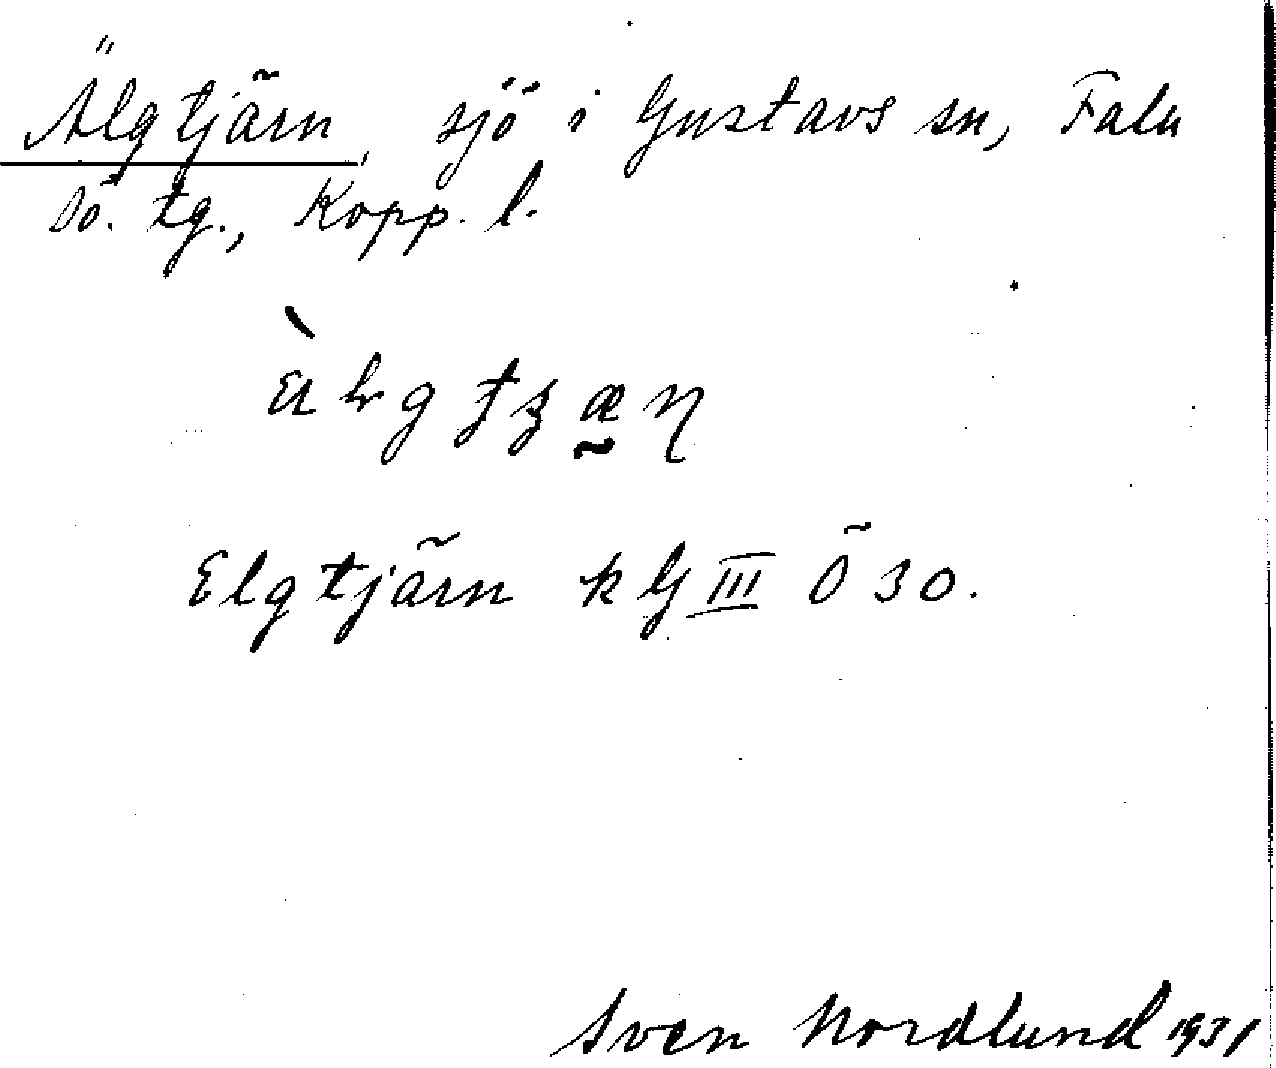 Älgtjärn, sjö i Gustavs sn, Falu
sö. tg., Kopp. l.
Elgtjärn kG III Ö 30.
Sven Nordlund 1931